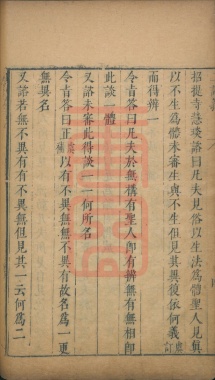 招提寺慧琰諮曰凡夫見俗以生法為體聖人見真
以不生為體未審生與不生但見其異復依何義
而得辨一
令旨答曰凡夫於無構有聖人即有辨無有無相即
此談一體
又諮未審此得談一一何所名
令旨答曰正以有不異無無不異有故名為一更
無異名
又諮若無不異有有不異無但見其一云何為二